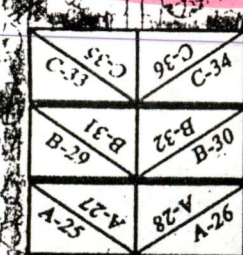 C-33
C-35
C-36
C-34
B-29
B-31
B-32
B-30
A-25
A-27
A-28
A-26